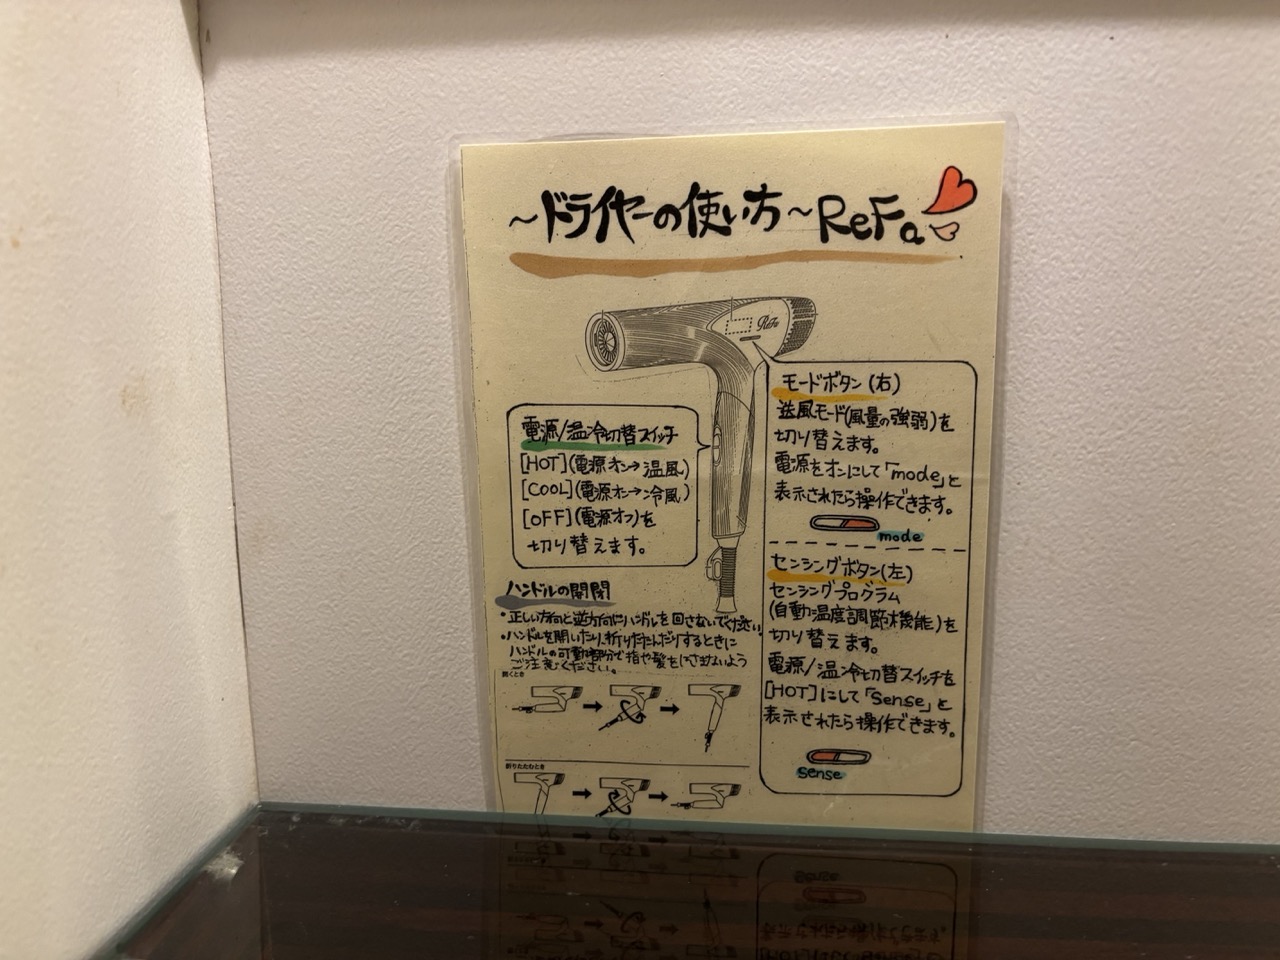 ～ドライヤーの使い方～ReFa
ReFa
電源/温冷切替スイッチ
[HOT](電源オン→温風)
[COOL](電源オン→冷風)
[OFF](電源オフ)を
切り替えます。
モードボタン(右)
送風モード(風量の強弱)を
切り替えます。
電源をオンにして「mode」と
表示されたら操作できます。
mode
センシングボタン(左)
センシングプログラム
(自動温度調節機能)を
切り替えます。
電源/温冷切替スイッチを
[HOT]にして「Sense」と
表示されたら操作できます。
sense
ハンドルの開閉
・正しい方向と逆方向にハンドルを回さないでください。
・ハンドルを開いたり、折りたたんだりするときに
ハンドルの可動部分で指や髪をはさまないよう
ご注意ください。
開くとき
折りたたむとき